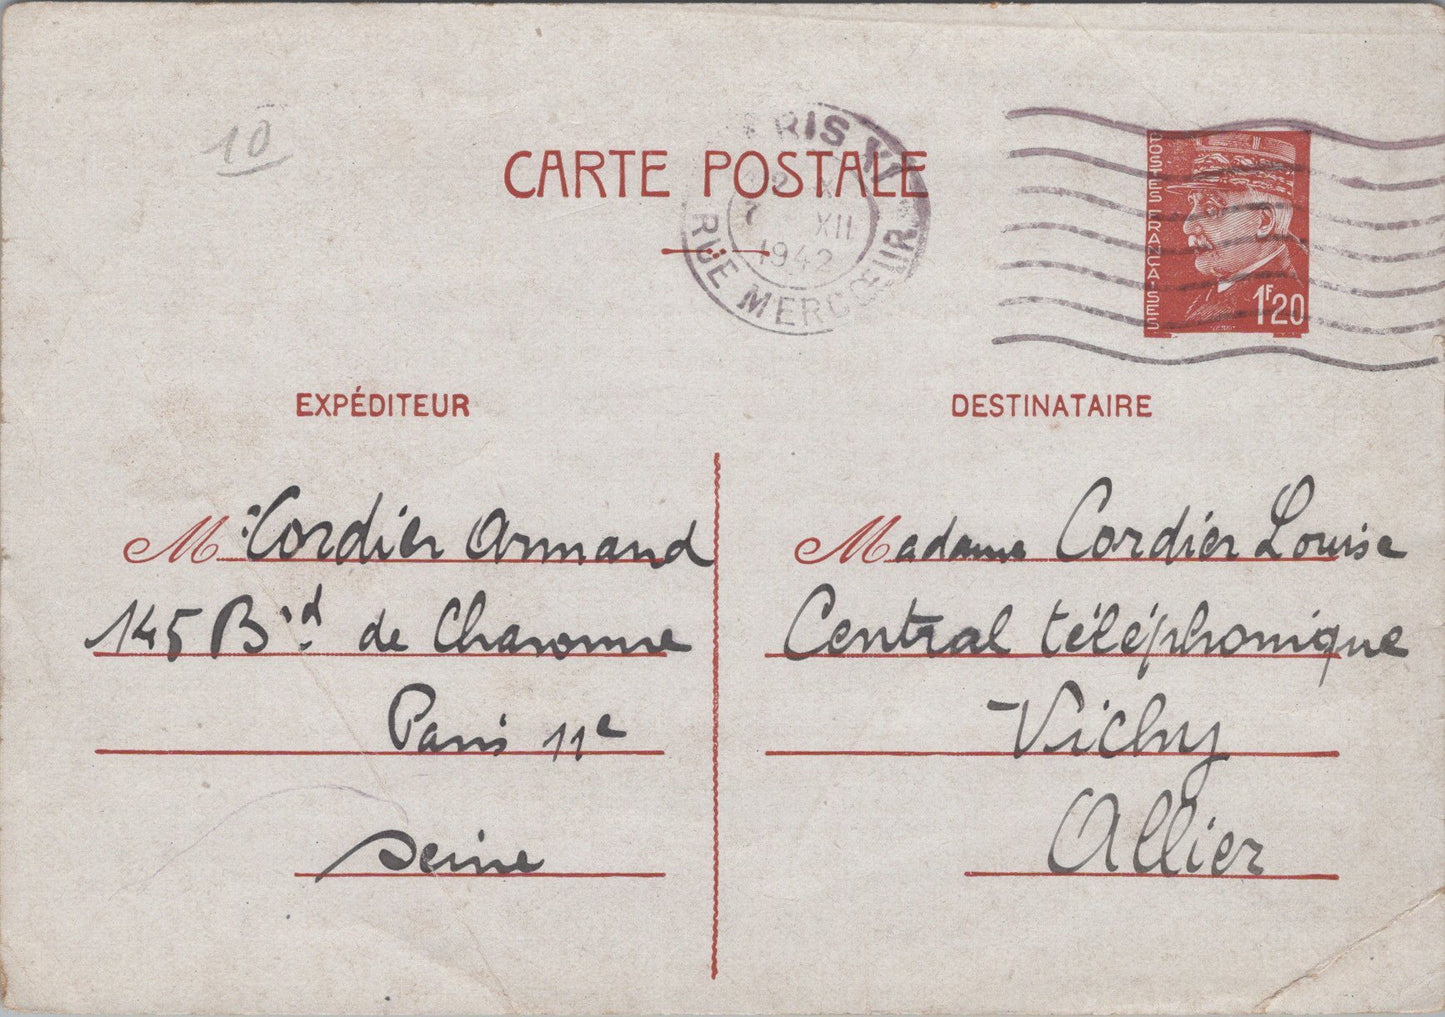 10
CARTE POSTALE
RIS XI
7 XII
1942
RUE MERCŒUR
POSTES FRANCAISES
1F20
EXPÉDITEUR
DESTINATAIRE
Mr Cordier Armand
145 Bd de Charonne
Paris 11e
Seine
Madame Cordier Louise
Central téléphonique
Vichy
Allier